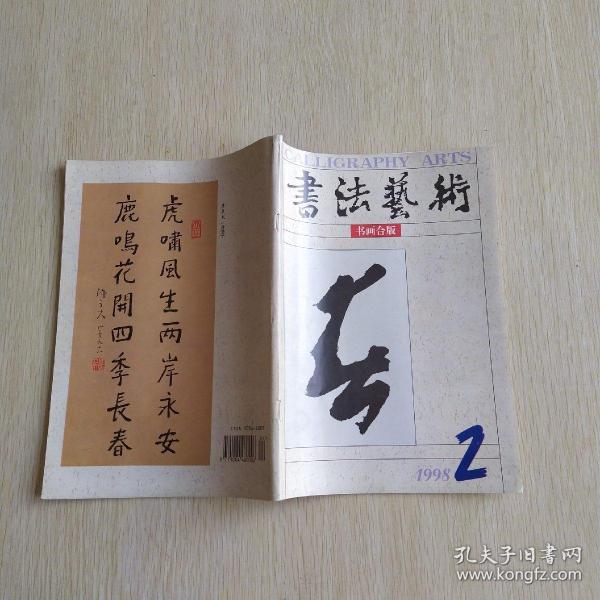 CALLIGRAPHY ARTS
書法藝術
书画合版
春
1998 2
虎嘯風生两岸永安
鹿鳴花開四季長春
孔夫子旧书网
www.kongfz.com